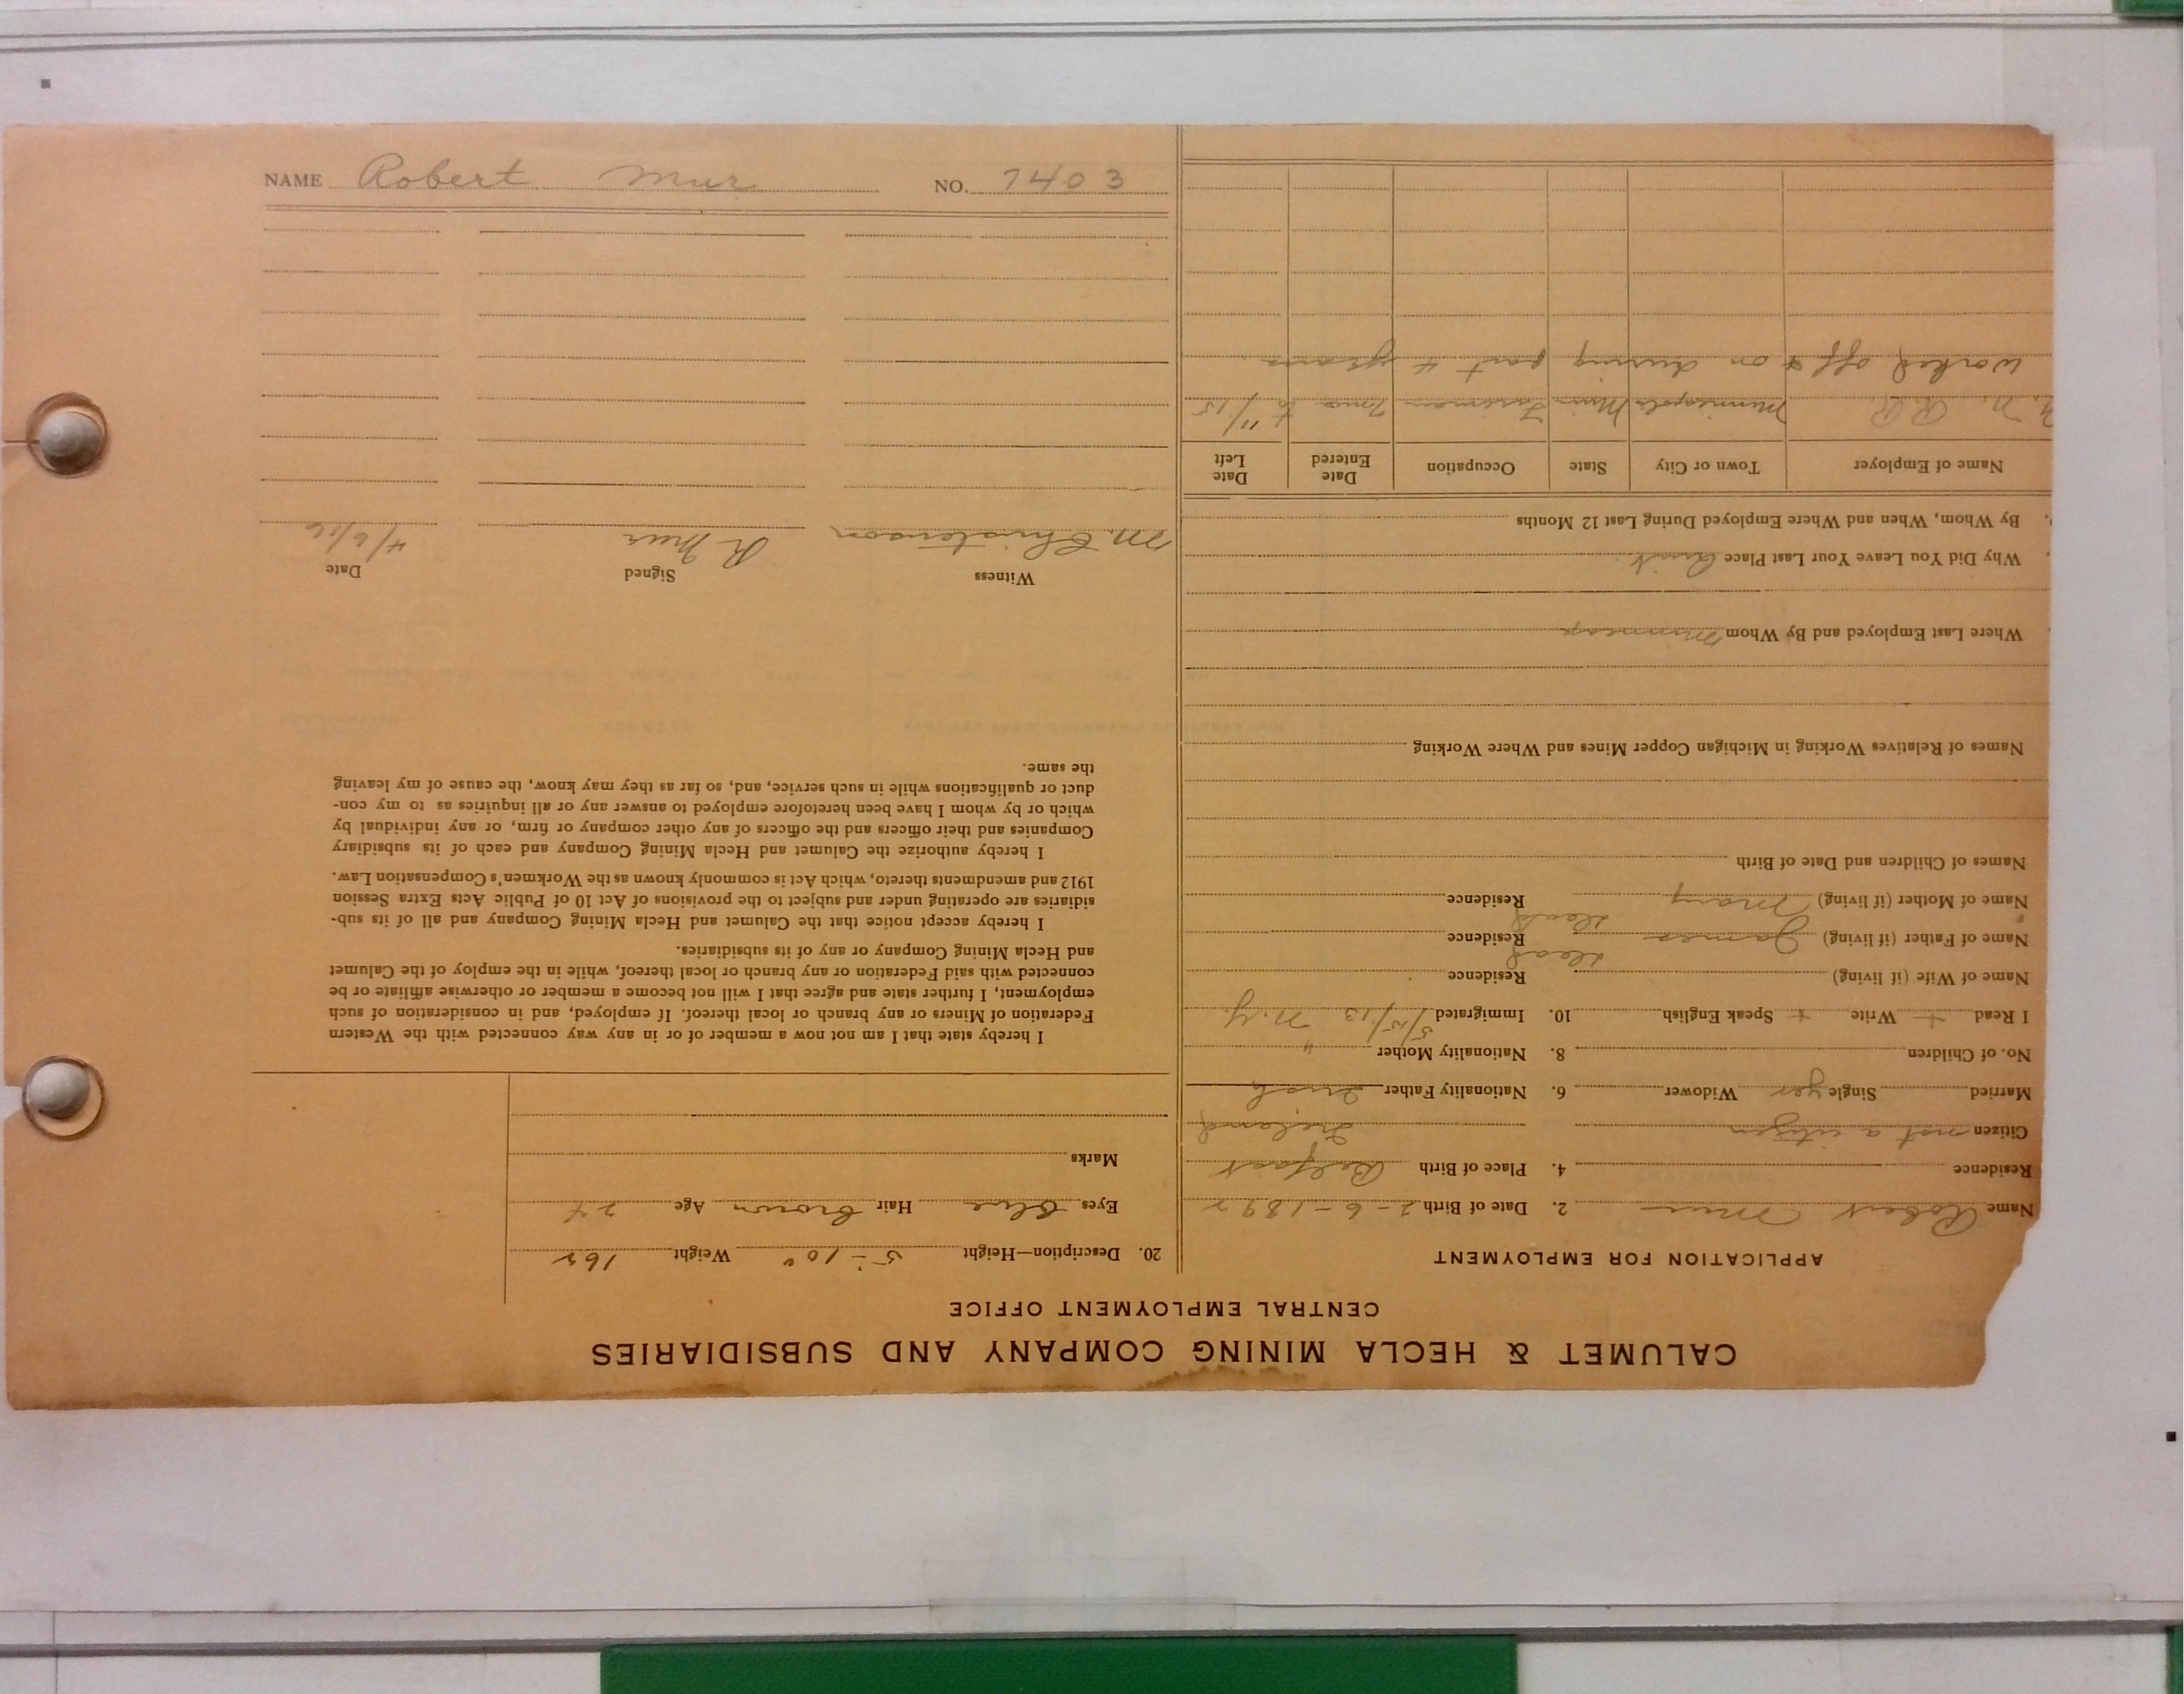 CALUMET & HECLA MINING COMPANY AND SUBSIDIARIES
CENTRAL EMPLOYMENT OFFICE
APPLICATION FOR EMPLOYMENT
Name Robert Mur 2. Date of Birth 2-6-1892
Residence 4. Place of Birth Belfast
Citizen not a citizen Ireland
Married Single yes Widower 6. Nationality Father Irish
No. of Children 8. Nationality Mother "
I Read + Write + Speak English 10. Immigrated 5/15/13 N.Y.
Name of Wife (if living) Residence
Name of Father (if living) James dead Residence
Name of Mother (if living) Mary dead Residence
Names of Children and Date of Birth
Names of Relatives Working in Michigan Copper Mines and Where Working
Where Last Employed and By Whom
Why Did You Leave Your Last Place Quit
By Whom, When and Where Employed During Last 12 Months
Name of Employer Town or City State Occupation Date Entered Date Left
N. R.R. Minneapolis Minn Fireman 7mos to 11/15
Worked off & on during past 4 years.
20. Description—Height 5-10" Weight 162
Eyes Blue Hair Brown Age 24
Marks
I hereby state that I am not now a member of or in any way connected with the Western
Federation of Miners or any branch or local thereof. If employed, and in consideration of such
employment, I further state and agree that I will not become a member or otherwise affiliate or be
connected with said Federation or any branch or local thereof, while in the employ of the Calumet
and Hecla Mining Company or any of its subsidiaries.
I hereby accept notice that the Calumet and Hecla Mining Company and all of its sub-
sidiaries are operating under and subject to the provisions of Act 10 of Public Acts Extra Session
1912 and amendments thereto, which Act is commonly known as the Workmen's Compensation Law.
I hereby authorize the Calumet and Hecla Mining Company and each of its subsidiary
Companies and their officers and the officers of any other company or firm, or any individual by
which or by whom I have been heretofore employed to answer any or all inquiries as to my con-
duct or qualifications while in such service, and, so far as they may know, the cause of my leaving
the same.
Witness Signed Date
M. Christenson R Mur 4/6/16
NAME Robert Mur NO. 7403